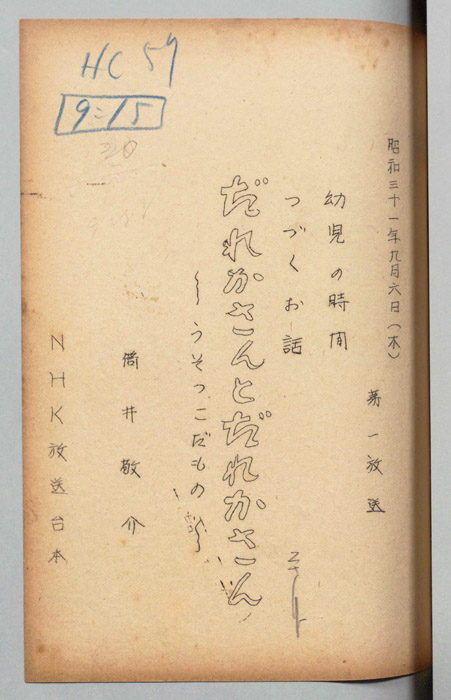 昭和三十一年九月六日(木)
第一放送
幼児の時間
つづくお話
だれかさんとだれかさん
~うそっこだもの~
筒井敬介
NHK放送台本
HC 57
9:15
30